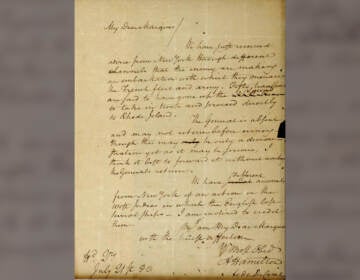 My Dear Marquis
We have just received
advice from New York through different
channels that the enemy are making
an embarkation with which they menace
the French fleet and army. Fifty transports
are said to have gone up the Sound
to take in troops and proceed directly
to Rhode Island.
The General is absent
and may not return before evening
though this may be only a demon-
stration yet as it may be serious, I
think it best to forward it without waiting
the Generals return.
We have different accounts
from New York of an action in the
West Indies in which the English lost
several ships. I am inclined to credit
them.
I am My Dear Marquis
with the truest affection
Yr Most Obedt
A Hamilton
Aide De Camp
Hd Qrs
July 21st 80